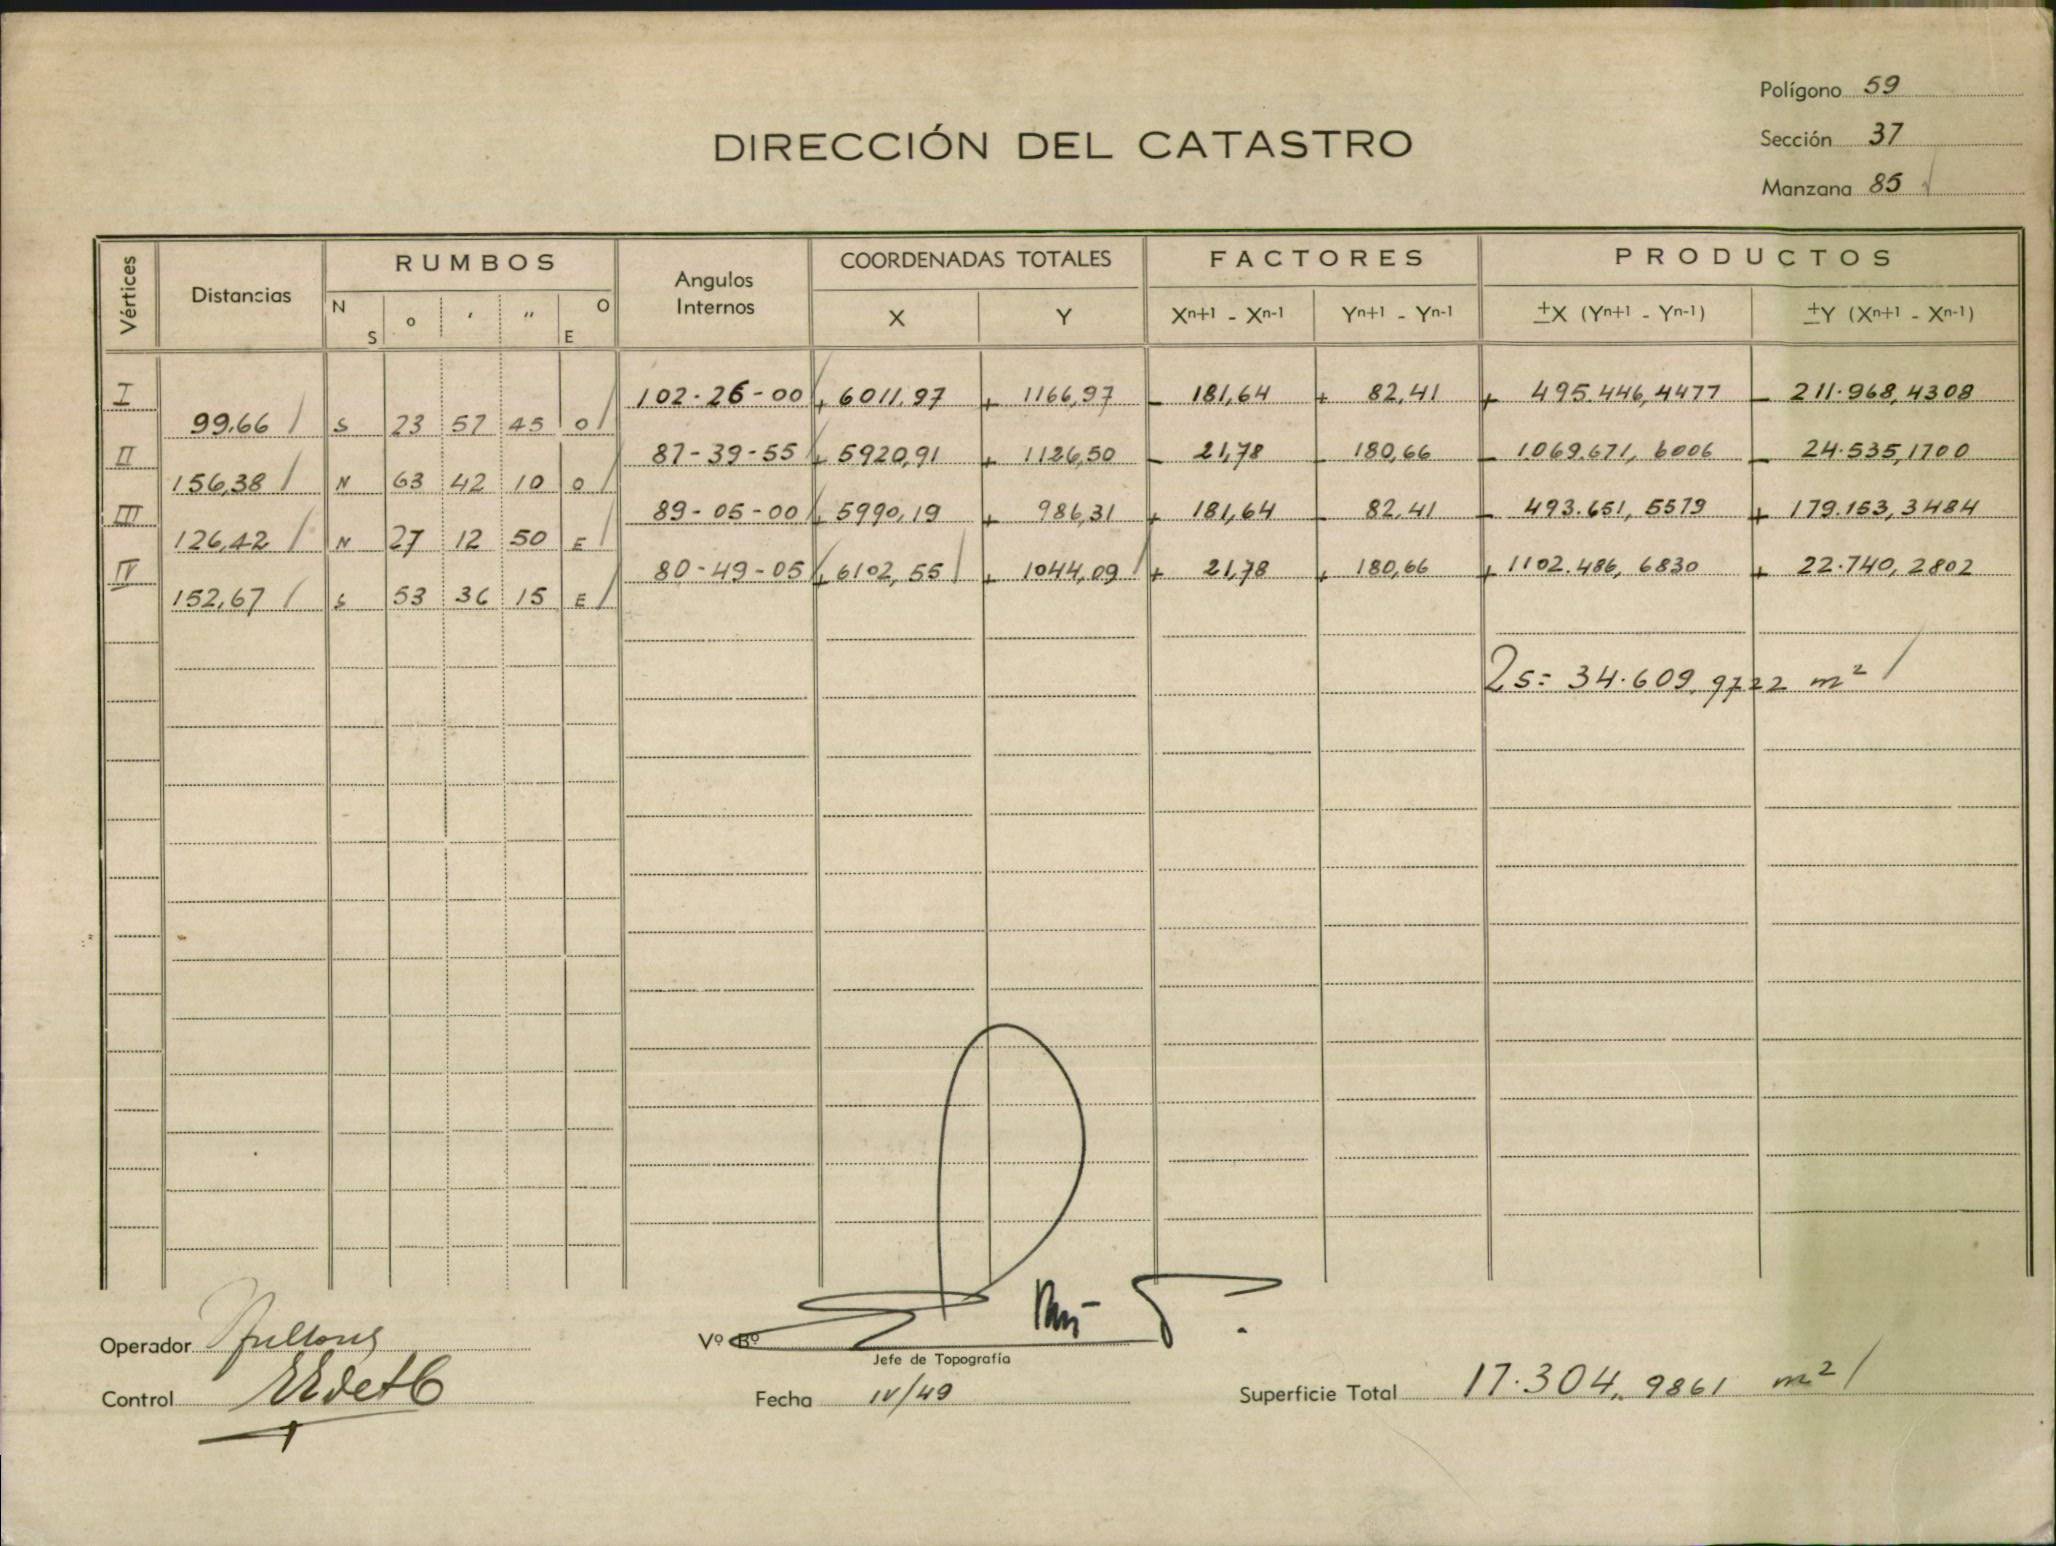 Polígono 59
DIRECCIÓN DEL CATASTRO
Sección 37
Manzana 85
Vértices Distancias RUMBOS Angulos Internos COORDENADAS TOTALES FACTORES PRODUCTOS
N S o ' " O E X Y Xn+1 - Xn-1 Yn+1 - Yn-1 ±X (Yn+1 - Yn-1) ±Y (Xn+1 - Xn-1)
I 102-26-00 + 6011,97 + 1166,97 - 181,64 + 82,41 + 495.446,4477 - 211.968,4308
99,66 S 23 57 45 O
II 87-39-55 + 5920,91 + 1126,50 - 21,78 - 180,66 - 1069.671,6006 - 24.535,1700
156,38 N 63 42 10 O
III 89-05-00 + 5990,19 + 986,31 + 181,64 - 82,41 - 493.651,5579 + 179.153,3484
126,42 N 27 12 50 E
IV 80-49-05 + 6102,55 + 1044,09 + 21,78 + 180,66 + 1102.486,6830 + 22.740,2802
152,67 S 53 36 15 E
2s= 34.609,9722 m²
Operador
Vº Bº
Jefe de Topografía
Control
Fecha IV/49
Superficie Total 17.304,9861 m²